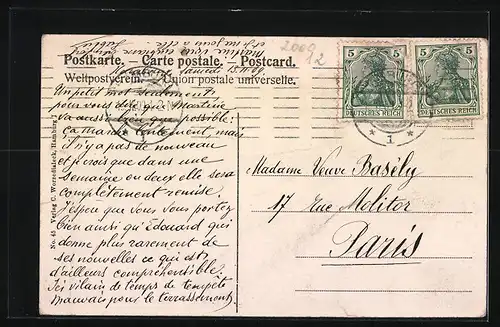 Postkarte. - Carte postale. - Postcard.
Weltpostverein. - Union postale universelle.
samedi
2009
12
5 5
5 5
DEUTSCHES REICH
DEUTSCHES REICH
* 1 *
* 1 *
Un petit mot seulement
pour vous dire que Martine
va aussi bien que possible:
ça marche lentement, mais
il n'y a pas de nouveau
et je crois que dans une
semaine ou deux elle sera
complètement remise.
J'espère que vous vous portez
bien ainsi qu'Edouard qui
donne plus rarement de
ses nouvelles ce qui est
d'ailleurs compréhensible.
Ici vilain temps de tempête
mauvais pour le terrassement
Madame Veuve Basély
17 Rue Molitor
Paris
No. 45 Verlag C. Worzedialeck, Hamburg 1